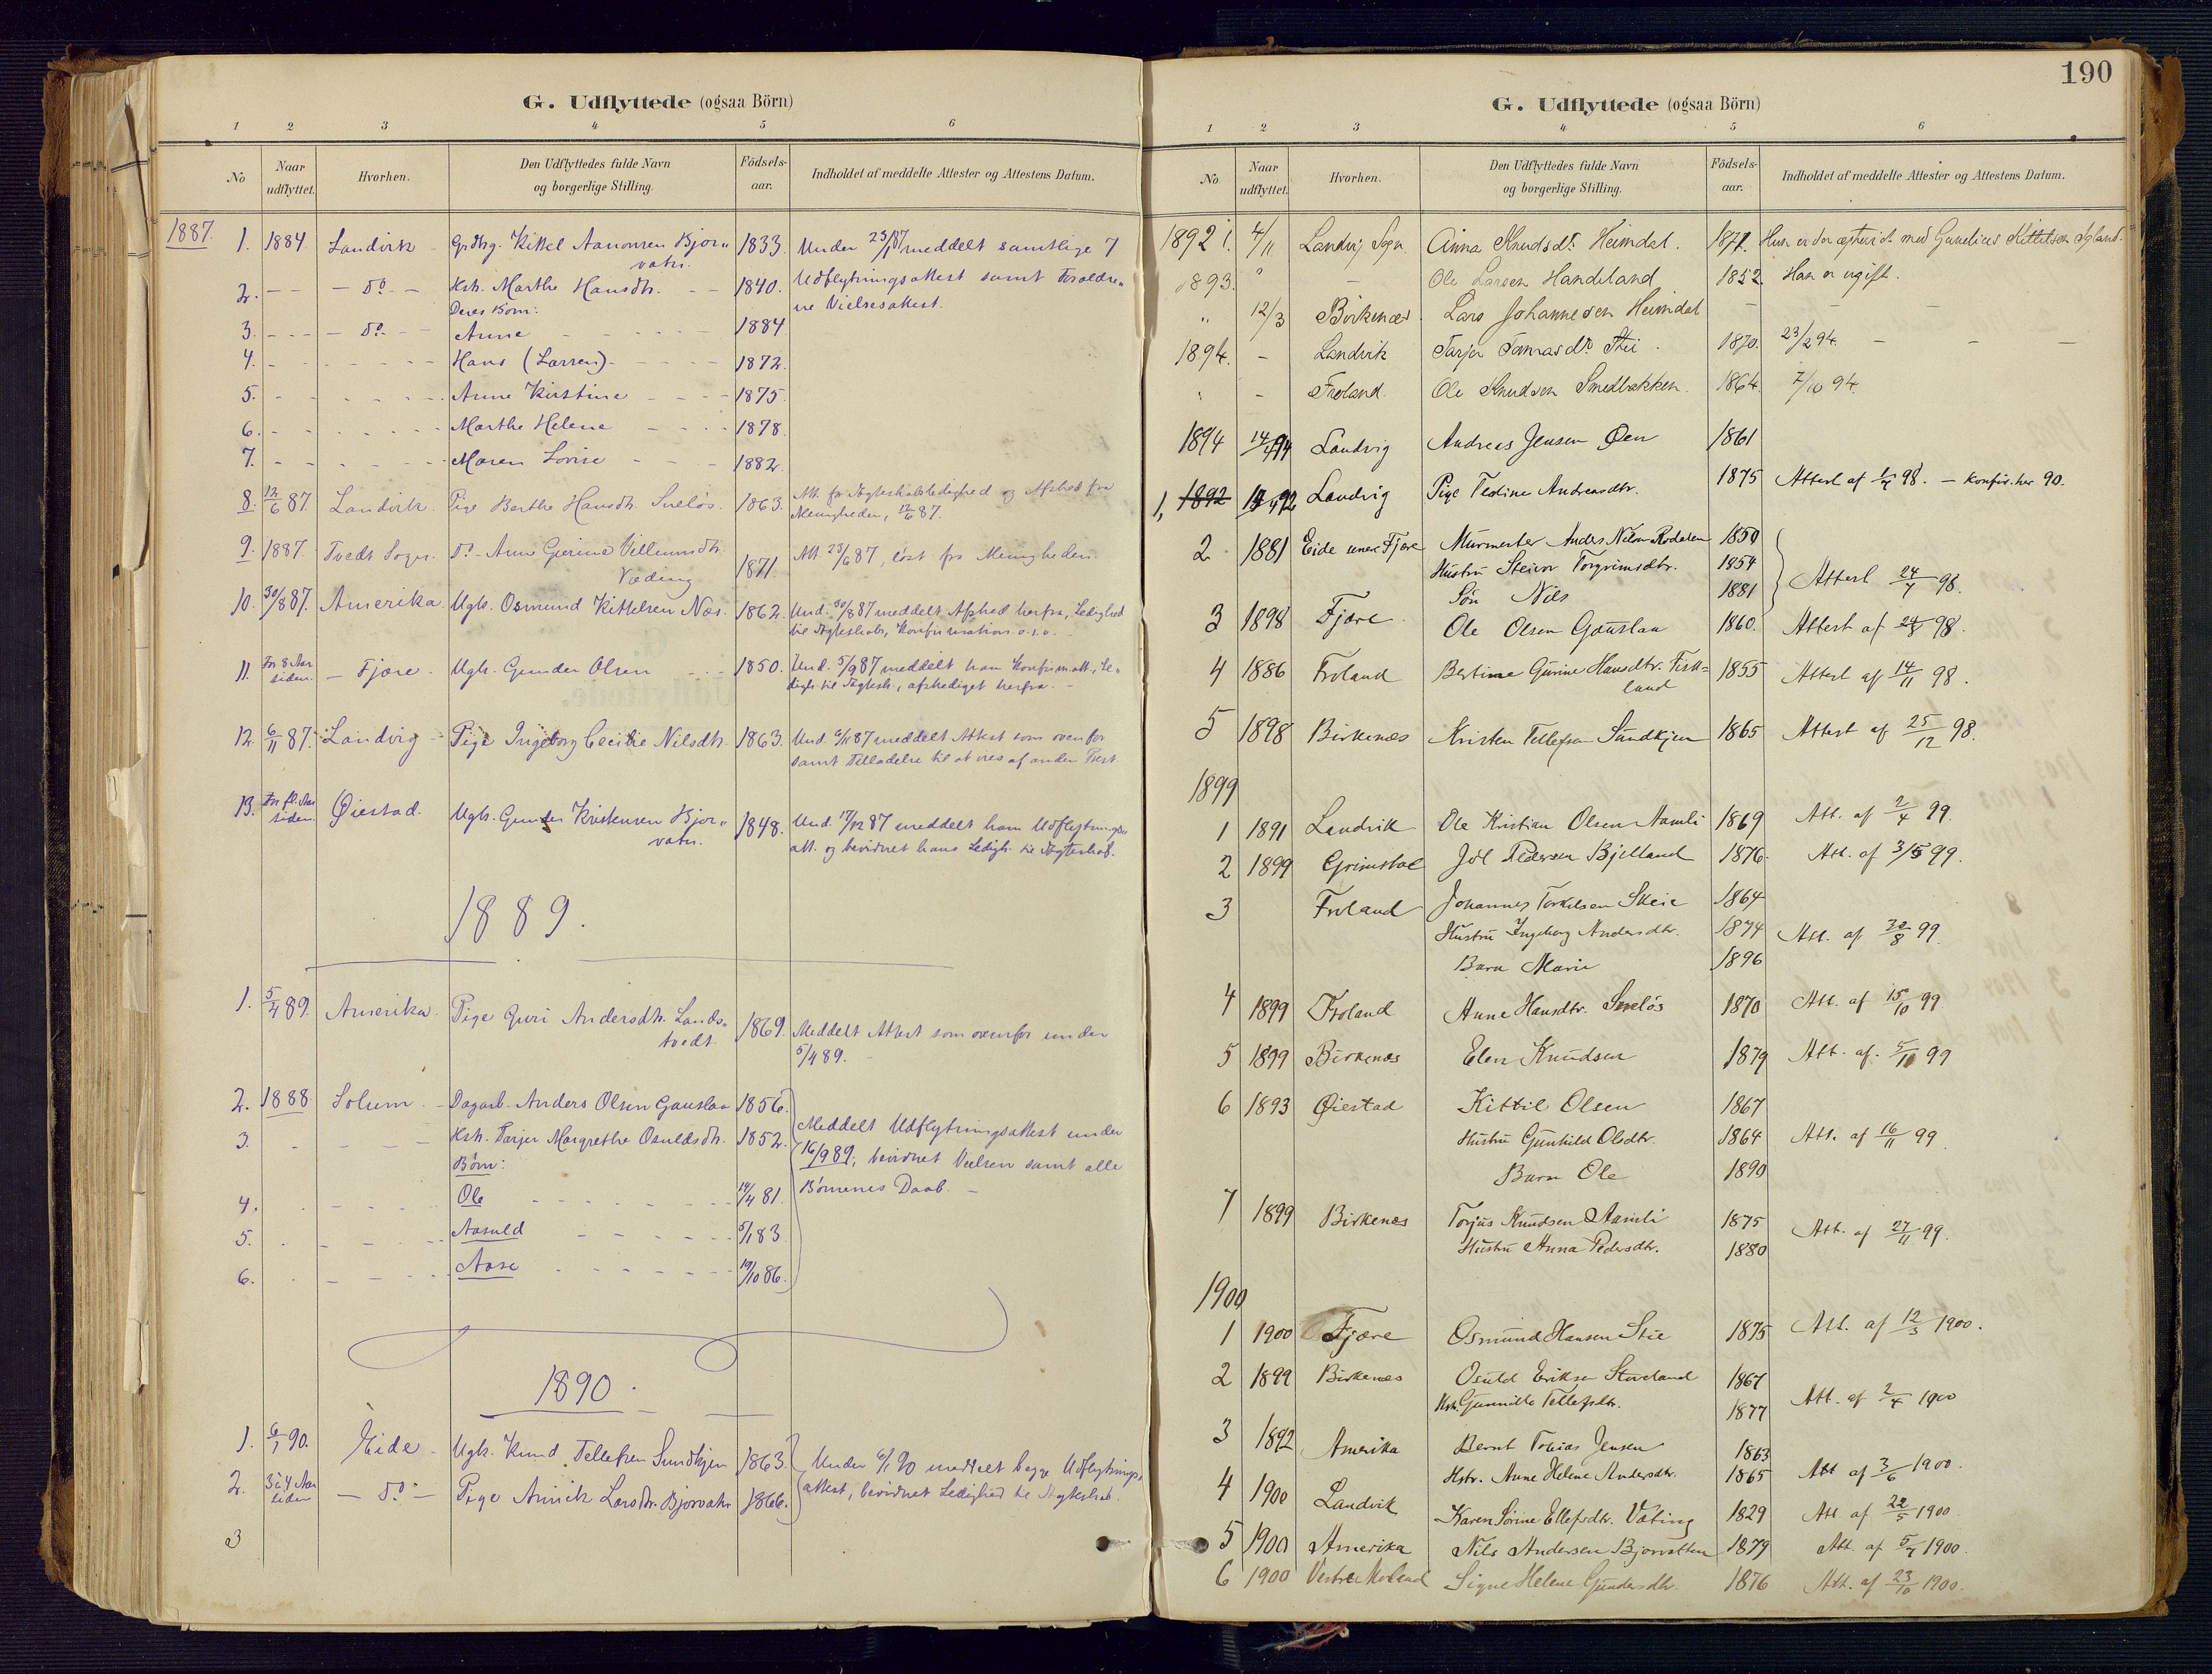 G. Udflyttede (ogsaa Börn)
1 2 3 4 5 6
No
Naar udflyttet.
Hvorhen.
Den Udflyttedes fulde Navn og borgerlige Stilling.
Födsels-aar.
Indholdet af meddelte Attester og Attestens Datum.
1887. 1. 1884. Landvik - Grdbrg. Kittel Aanonsen Bjor„ 1833. Under 23/1 87 meddelt samtlige 7
vatn.
2. - - - do - Hst. Marthe Hansdtr. - - 1840. Udflytningsattest samt Foræltre„
Deres Børn: ne Vielsesattest.
3. - - - - do - - Anne - - - - 1884.
4. - - - - Hans (Larsen) - - - 1872.
5. - - - - Anne Kirstine - - - 1875.
6. - - - - Marthe Helene - - - 1878.
7. - - - - Maren Lovise - - - 1882.
8. 12/6 87. Landvik. Pige Berthe Hansdtr. Sneløs. 1863. Att. for Ægteskabsledighed og Afsked fra
Menigheden, 12/6 87.
9. 1887. Tvedt Sogn. do - Anne Gurine Villumsdtr. 1871. Att. 23/6 87, løst fra Menigheden.
Væding
10. 30/8 87. Amerika. Ugk. Osmund Kittelsen Næs. 1862. Und. 30/8 87 meddelt Afsked herfra, Ledighed
til Ægteskab, Konfirmation o.s.v.
11. For 8 Aar siden. - Fjære - Ugk. Gunder Olsen - - 1850. Und. 5/9 87 meddelt ham Konfirm.att., Le„
digh. til Ægtesk., afskediget herfra. -
12. 6/11 87. Landvig - Pige Ingeborg Cecilie Nilsdtr. 1863. Und. 6/11 87 meddelt Attest som ovenfor
samt Tilladelse til at vies af anden Præst.
13. For fl. Aar siden. Øiestad. Ugk. Gunder Kristensen Bjor„ 1848. Und. 17/12 87 meddelt ham Udflytnings„
vatn. att. og bevidnet hans Ledigh. til Ægteskab.
1889.
1. 5/4 89. Amerika. Pige Guri Andersdtr. Lands„ 1869. Meddelt Attest som ovenfor under
tvedt. 5/4 89. -
2. 1888. Solum - Dagarb. Anders Olsen Gauslaa 1856.
3. - - - Hst. Tarjer Margrethe Osuldsdtr. 1852. Meddelt Udflytningsattest under
Børn: 16/9 89, bevidnet Vielsen samt alle
4. - - - Ole - - - 14/4 81. Børnenes Daab. -
5. - - - Aasuld - - - 5/1 83.
6. - - - Aase - - - 19/10 86.
1890.
1. 6/1 90. Eide - Ugk. Knud Tellefsen Sundkjen 1863. Under 6/1 90 meddelt begge Udflytnings„
2. 3 à 4 Aar siden - do - Pige Annik Larsdtr. Bjorvatn 1866. attest, bevidnet Ledighed til Ægteskab.
3
190
G. Udflyttede (ogsaa Börn)
1 2 3 4 5 6
No
Naar udflyttet.
Hvorhen.
Den Udflyttedes fulde Navn og borgerlige Stilling.
Födsels-aar.
Indholdet af meddelte Attester og Attestens Datum.
1892 1. 4/11 Landvig Sogn. Anna Knudsdtr Heimdal. 1871. Hun er der ægteviet med Kittelsen Igland.
1893. " - Ole Larsen Handeland 1852. Han er ugift.
" 12/3 Birkenæs Lars Johannesen Heimdal - - -
1894. - Landvik Tarjer Tomasdtr Stii. 1870. 23/2 94. - - -
" - Froland. Ole Knudsen Smedbakken. 1864. 7/10 94.
1894 14/4 94 Landvig Andreas Jensen Øen 1861
1, 1892 92 Landvig Pige Tedine Andreasdtr. 1875 Attest af 98. - Konfir. her 90.
2 1881 Eide senere Fjære Murmester Anders Nilsen Rodalen 1850
Hustru Steivor Torgrimsdtr. 1854
Søn Nils 1881 Attest 24/7 98.
3 1898 Fjære. Ole Olsen Gauslaa 1860. Attest af 24/8 98.
4 1886 Froland Bertine Gurine Hansdtr. Fisk= 1855 Attest af 14/11 98.
land
5 1898 Birkenæs Kristen Tellefsen Sundkjen 1865 Attest af 25/12 98.
1899
1 1891 Landvik Ole Kristian Olsen Aamli 1869 Att. af 2/4 99.
2 1899 Grimstad Joel Pedersen Bjelland 1876. Att. af 3/5 99.
3 Froland Johannes Torkelsen Skeie 1864
Hustru Ingeborg Andersdtr. 1874 Att. af 22/8 99.
Barn Marie 1896
4 1899 Froland Anne Hansdtr. Sneløs 1870 Att. af 15/10 99.
5 1899 Birkenæs Elen Knudsen 1879 Att. af. 5/11 99
6 1893 Øiestad Kittil Olsen 1867
Hustru Gunhild Olsdtr. 1864 Att. af 16/11 99
Barn Ole 1890
7 1899 Birkenes Torjus Knudsen Aamli 1875 Att. af 27/11 99.
Hustru Anna Pedersdtr. 1880
1900
1 1900 Fjære Osmund Hansen Stie 1875 Att. af 12/3 1900.
2 1899 Birkenæs Osuld Eriksen Stoveland 1867
Hst. Gunnilla Tellefsdtr. 1877 Att. af 2/4 1900
3 1892 Amerika Bernt Tobias Jensen 1863
Hstr. Anne Helene Andersdtr. 1865 Att af 3/6 1900.
4 1900 Landvik Karen Sørine Ellefsdtr. Væting 1829 Att. af 22/5 1900.
5 1900 Amerika Nils Andersen Bjorvatten 1879 Att. af 5/7 1900.
6 1900 Vestre Moland Signe Helene Gundersdtr. 1876 Att. af 23/10 1900.